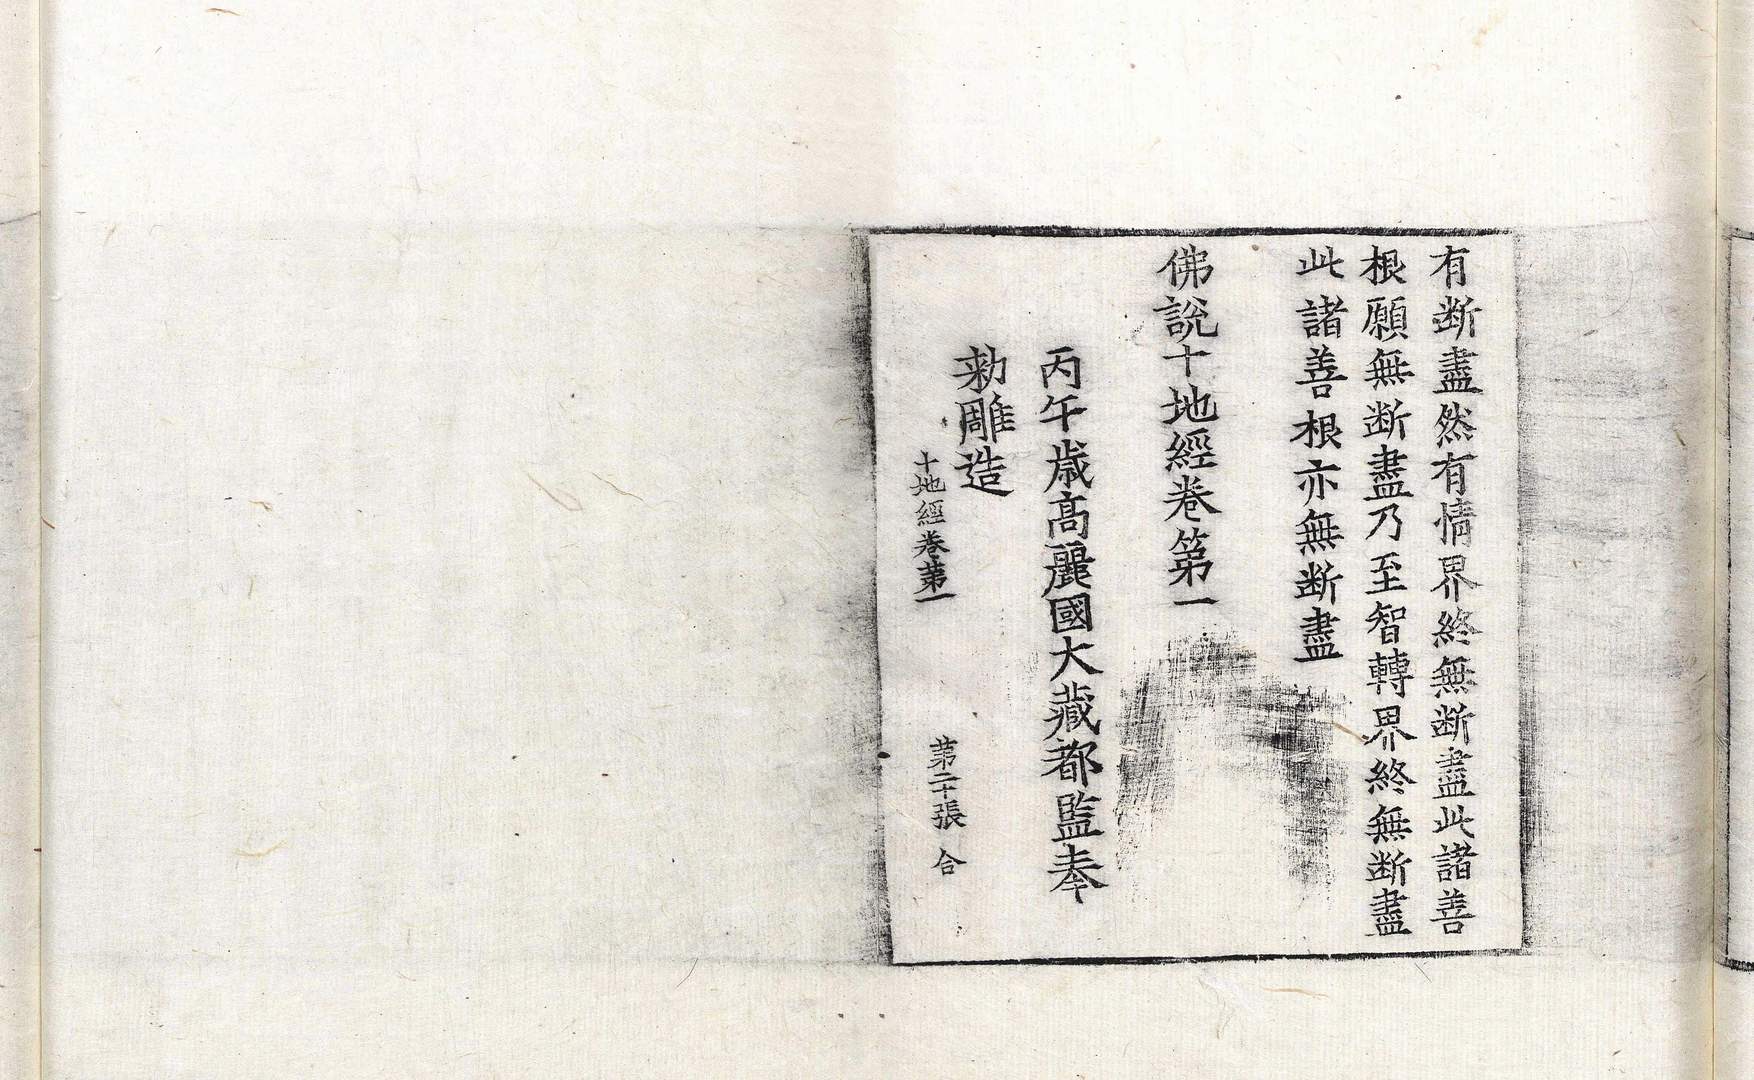 有断盡然有情界終無断盡此諸善
根願無断盡乃至智轉界終無断盡
此諸善根亦無断盡
佛說十地經卷第一
丙午歲高麗國大藏都監奉
勑雕造
十地經卷第一 第二十張 合